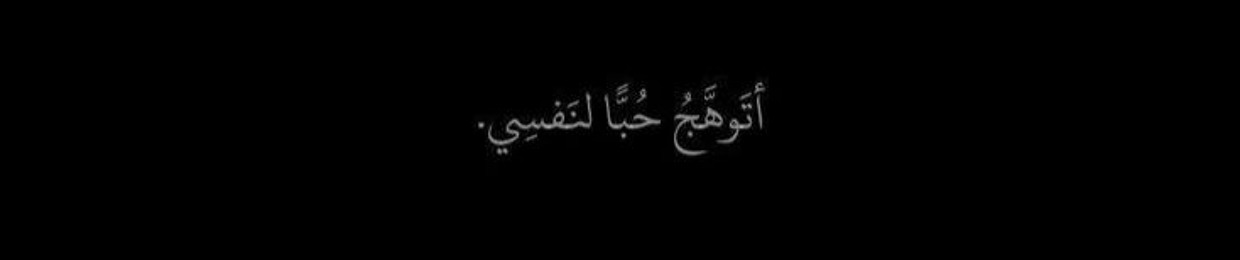 أتَوهَّجُ حُبًّا لنَفسِي.